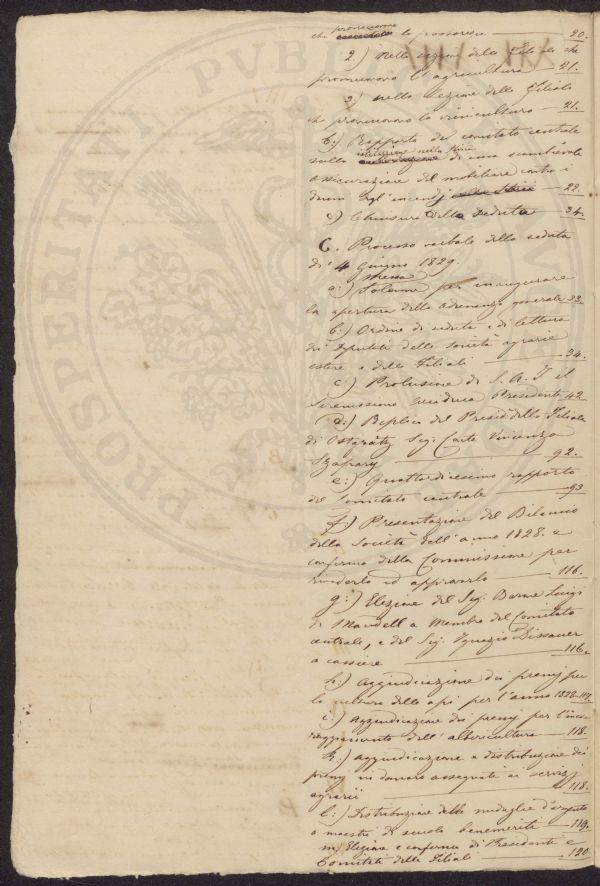 promuovono
che la possessione — 20.
2.) Nella sezione delle Filiali che
promuovono l'agricultura — 21.
3) nella sezione delle Filiali
che promuovono la vinicultura — 21.
b.) Rapporto del comitato centrale
istituzione nella Stiria
sulla di una scambievole
assicurazione del mobiliare contro i
danni degl'incendj — 22.
c) Chiusura della seduta — 34.
C. Processo verbale della seduta
di' 4 Giugno 1829.
messa
a.) Solenne per inaugurare
la apertura della adunanza generale 33.
b.) Ordine di seduta e di lettura
dei Deputati delle Società agrarie
estere e delle Filiali — 34.
c.) Prolusione di S. A. I. il
Serenissimo Arciduca Presidente 42.
d.) Replica del Presid. della Filiale
di Sig. Conte Vincenzo
Szapary — 92.
e.) Quattordicesimo rapporto
del Comitato centrale — 93
f.) Presentazione del Bilancio
della Società dell'anno 1828. e
conferma della Commissione per
rivederlo ed appurarlo — 116.
g.) Elezione del Sig. Barone Luigi
di Mandell a Membro del Comitato
centrale, e del Sig. Ignazio Dissauer
a cassiere — 116.
h.) Aggiudicazione dei premj per
la cultura delle api per l'anno 1828 — 117.
i.) Aggiudicazione dei premj per l'inco-
raggiamento dell'albericultura — 118.
k.) Aggiudicazione e distribuzione dei
premj in danaro assegnati ai servizj
agrarii — 118.
l.) Distribuzione delle medaglie d'argento
a maestri di scuola benemeriti — 119.
m) Elezione e conferma di Presidenti e
Comitati delle Filiali — 120.
PROSPERITATI PVBLICAE